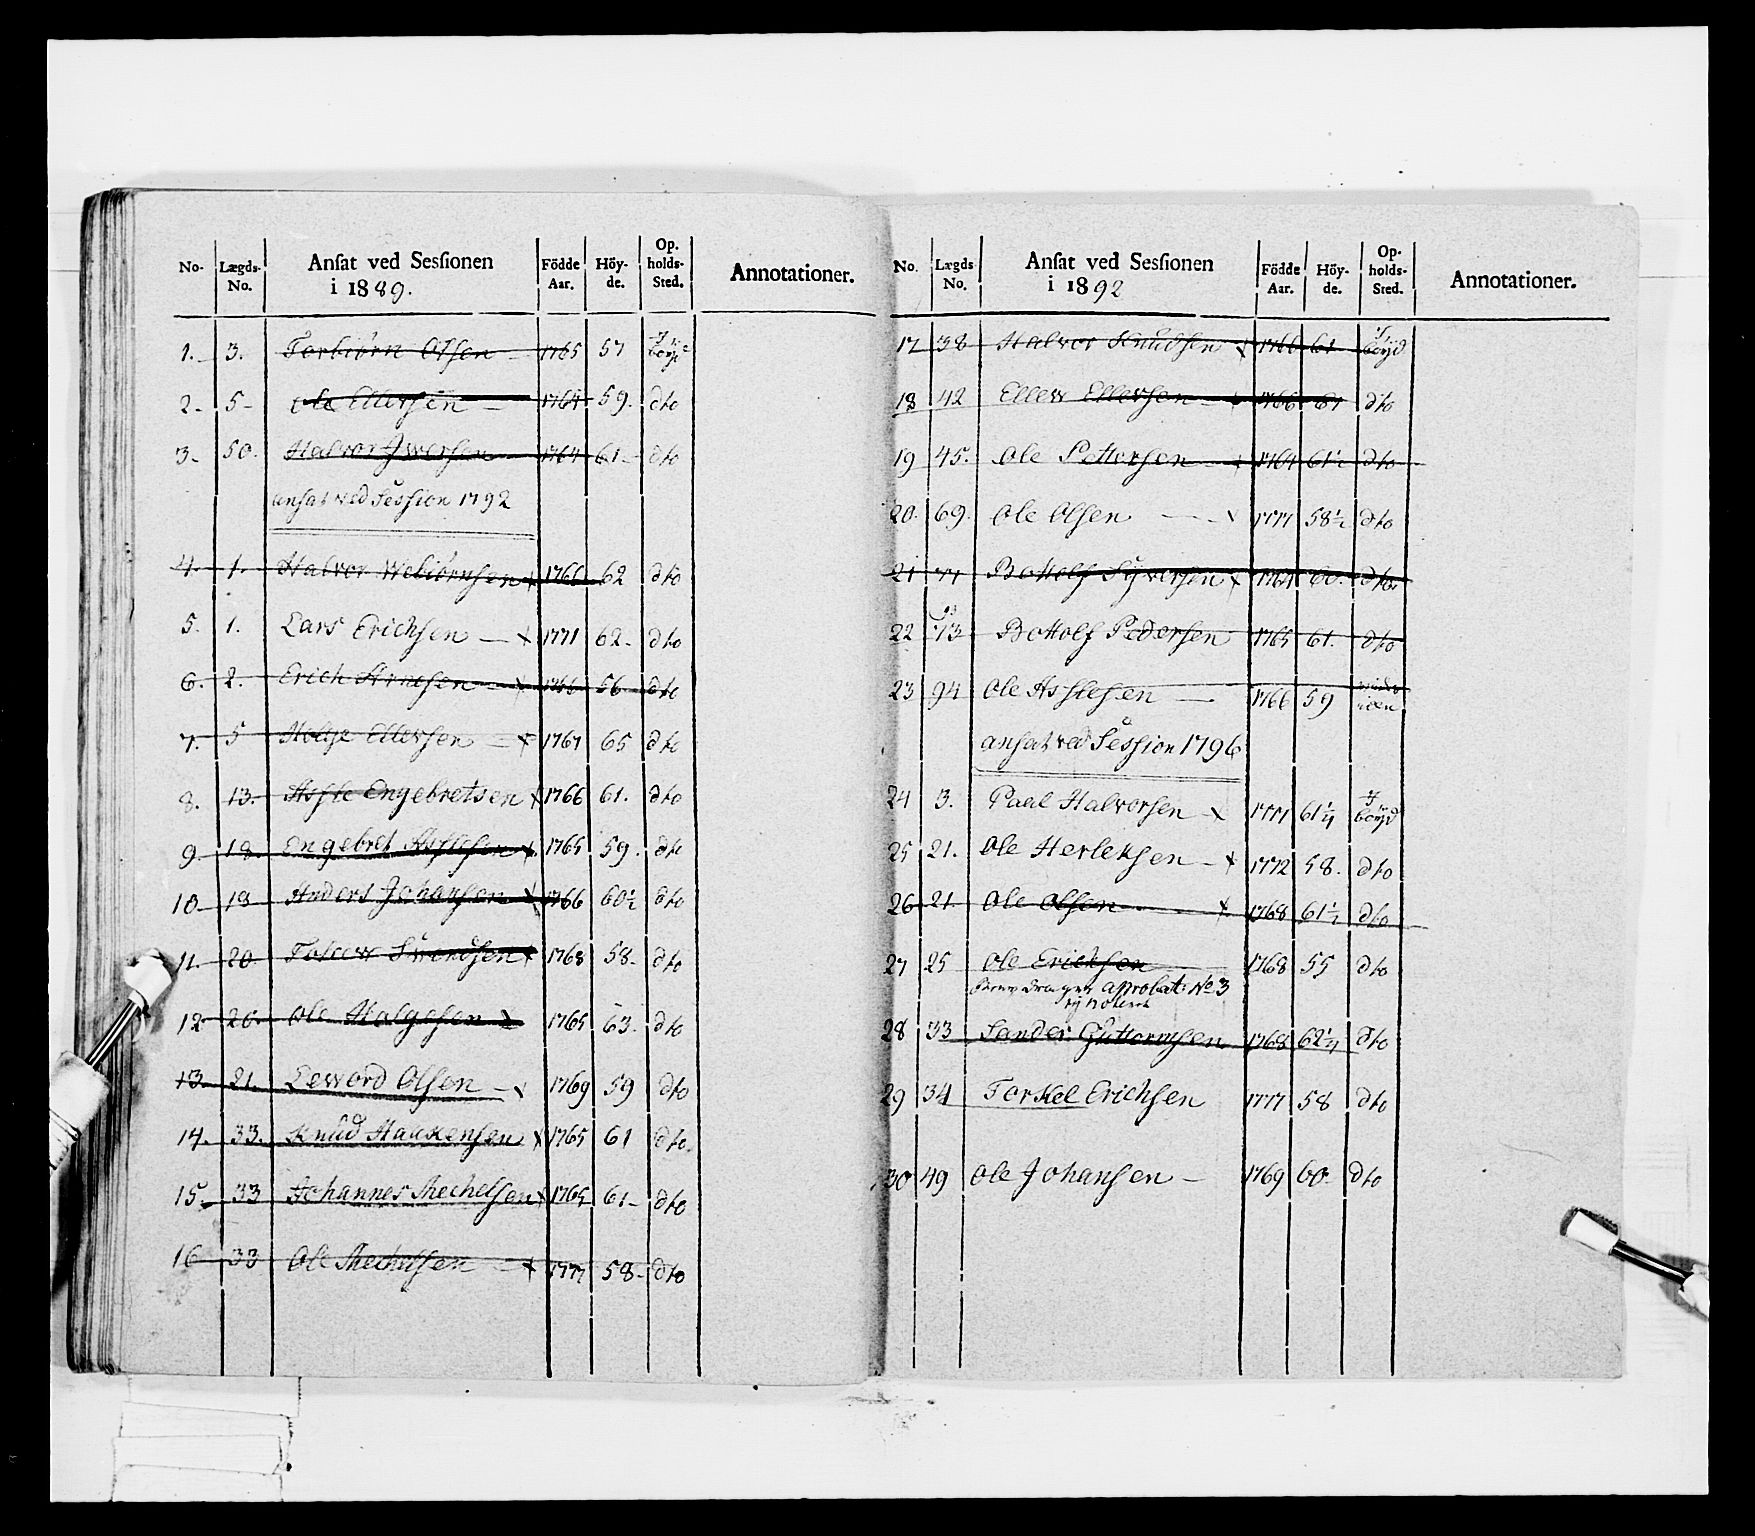 No. Lægds- No. Ansat ved Sessionen i 1889. Födde Aar. Höy- de. Op- holds- Sted. Annotationer.
1. 3. Torbiörn Olsen 1765 57 I bøyd
2. 5 Ole Ellevsen 1764 59. dto
3. 50. Halvor Iwersen 1764 61 dto
ansat ved Session 1792
4. 1. Halvor Webiörnsen 1766 62 dto
5. 1. Lars Erichsen 1771 62. dto
6. 2. Erich Arnesen 1766 56 dto
7. 5 Holtje Ellevsen 1767 65 dto
8. 13. Aslle Engebretsen 1766 61. dto
9. 18. Engebret Asllesen 1765 59. dto
10 19 Anders Johansen 1766 60½ dto
11. 20. Tollew Swendsen 1768 58. dto
12 20. Ole Halgesen 1765 63. dto
13 21. Leword Olsen 1769 59 dto
14. 33. Knud Haakensen 1765 61 dto.
15. 33 Johannes Mechelsen 1765 61 dto
16 33 Ole Mechelsen 1771 58 dto
No. Lægds No. Ansat ved Sessionen i 1892 Födde Aar. Höy- de. Op- holds- Sted. Annotationer.
17 38 Halvor Knudsen 1766 61 I bøyd
18 42 Ellew Ellevsen 1766 61 dto
19 45. Ole Pettersen 1764 61½ dto
20. 69. Ole Olsen 1771 58½ dto
21 71 Bottolf Syversen 1764 60. dto.
22 73 Bottolf Pedersen 1765 61. dto
23 94 Ole Asslesen 1766 59
ansat ved Session 1796
24 3. Paal Halvorsen 1771 61¼ I bøyd
25 21. Ole Herleksen 1772 58. dto
26 21. Ole Olsen 1768 61½ dto
27 25 Ole Erichsen 1768 55 dto
aprobat: No 3
28 33 Sander Guttormsen 1768 62¼ dto
29 34 Torkel Erichsen 1771 58 dto
30 49 Ole Johansen 1769 60. dto